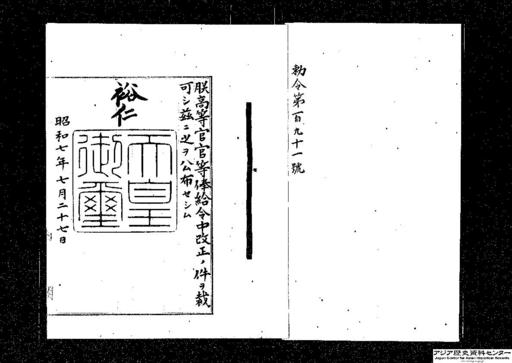 勅令第百九十一號
朕高等官官等俸給令中改正ノ件ヲ裁
可シ茲ニ之ヲ公布セシム
裕仁
天皇
御璽
昭和七年七月二十七日
アジア歴史資料センター
Japan Center for Asian Historical Records